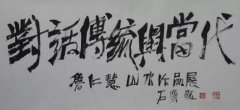 對話傳統與當代
魯仁慧山水作品展
石齋題